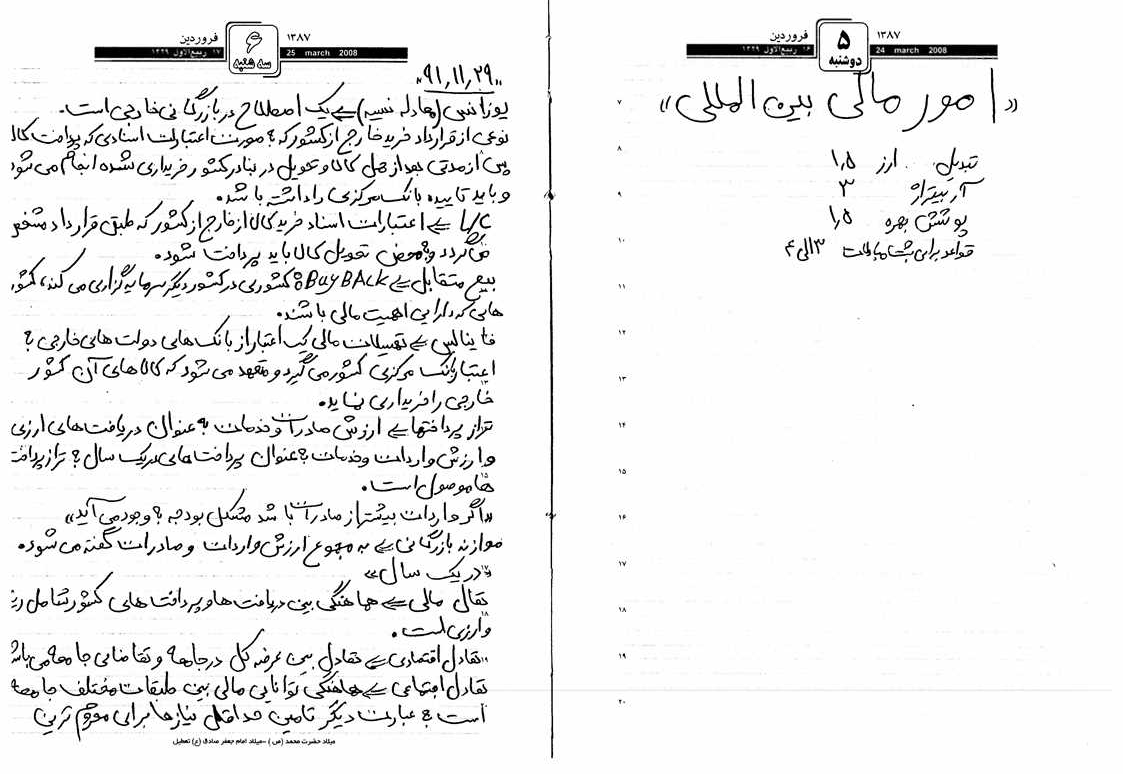 ۱۳۸۷ ۵ فروردین
24 march 2008 دوشنبه ۱۶ ربیع‌الاول ۱۴۲۹
«امور مالی بین المللی»
تبدیل ارز ۱,۵
آربیتراژ ۳
پوشش بهره ۱,۵
قواعد برای ۳ الی ۴
۷
۸
۹
۱۰
۱۱
۱۲
۱۳
۱۴
۱۵
۱۶
۱۷
۱۸
۱۹
۲۰
۱۳۸۷ ۶ فروردین
25 march 2008 سه شنبه ۱۷ ربیع‌الاول ۱۴۲۹
"۹۱,۱۱,۲۹"
یوزانس (معادله نسیه) ⇐ یک اصطلاح در بازرگانی خارجی است.
نوعی از قرارداد خرید خارج از کشور که به صورت اعتبارات اسنادی که پرداخت کالا
پس از مدتی بعد از حمل کالا و تحویل در بنادر کشور خریداری شده انجام می شود
و باید تاییده بانک مرکزی را داشته باشد.
⇐ اعتبارات اسناد خرید کالا از خارج از کشور که طبق قرارداد مشخص
می گردد و به محض تحویل کالا باید پرداخت شود.
بیع متقابل ⇐ Buy BAck: کشوری در کشور دیگر سرمایه گزاری می کند، کشور
هایی که دارایی اهمیت مالی باشند.
فاینانس ⇐ تسهیلات مالی که اعتبار از بانک های دولت های خارجی به
اعتبار بانک مرکزی کشور می گیرد و متعهد می شود که کالاهای آن کشور
خارجی را خریداری نماید.
تراز پرداختها ⇐ ارزش صادرات و خدمات به عنوان دریافت های ارزی
و ارزش واردات و خدمات به عنوان پرداخت های در یک سال به تراز پرداخت
ها موصول است.
«اگر واردات بیشتر از صادرات باشد مشکل بودجه به وجود می آید»
موازنه بازرگانی ⇐ به مجموع ارزش واردات و صادرات گفته می شود.
«در یک سال»
تعادل مالی ⇐ هماهنگی بین دریافت ها و پرداخت های کشور شامل
و ارزی است.
تعادل اقتصادی ⇐ تعادل بین عرضه کل در جامعه و تقاضای جامعه می باشد
تعادل اجتماعی ⇐ هماهنگی توانایی مالی بین طبقات مختلف جامعه
است به عبارت دیگر تامین حداقل نیازها برای محروم ترین
میلاد حضرت محمد (ص) - میلاد امام جعفر صادق (ع) تعطیل